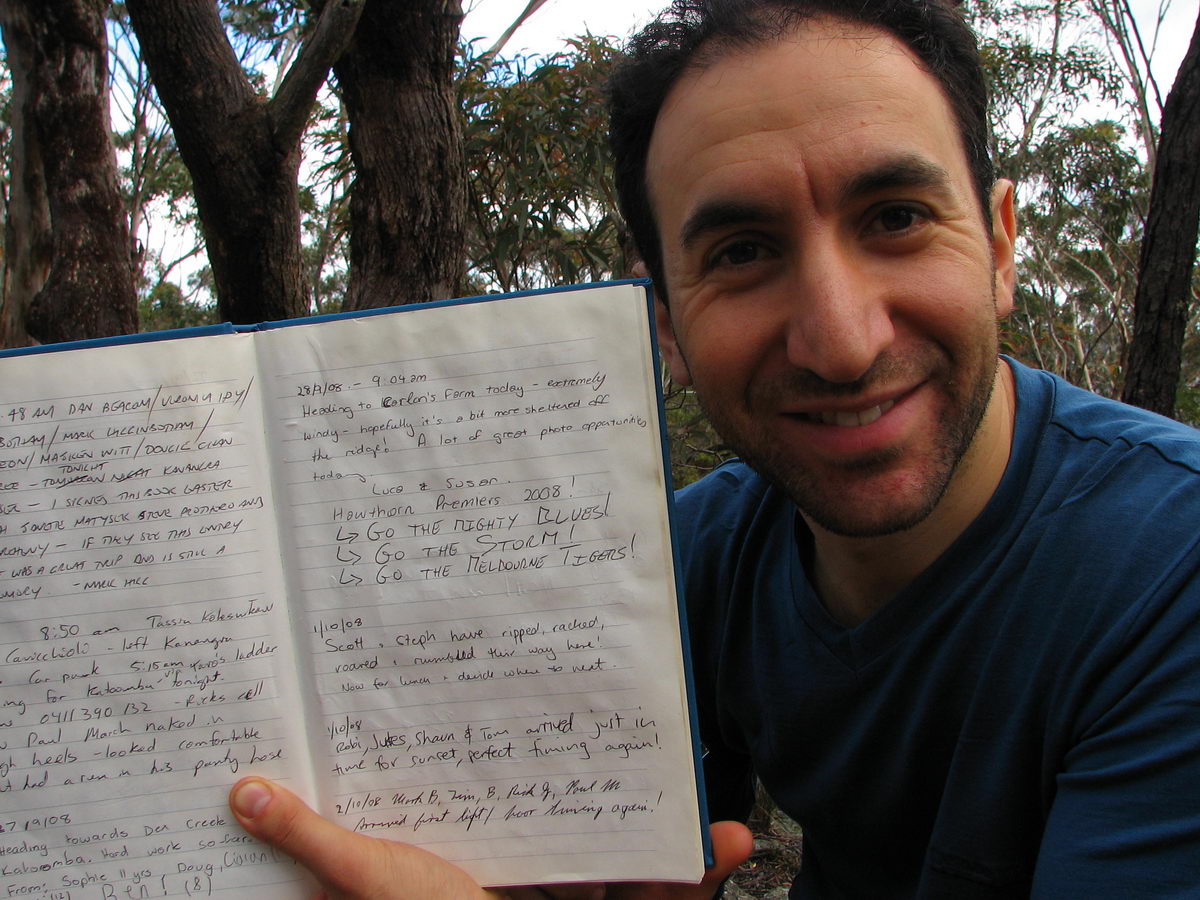 .48 AM DAN BEACOM/
/ MARK
/ MATJKEN WITT/
TONIGHT
KANANGRA
— I SIGNED THIS BOOK
— IF THEY SEE THIS ENTRY
WAS A GREAT TRIP AND IS STILL A
- MARK HILL
8:50 am Tassin
- left Kanangra
Car park 5:15am ladder
for Katoomba tonight.
0411 390 132 - Ricks cell
Paul March naked in
heels - looked comfortable
had a run in his panty hose
27/9/08
Heading towards Dex Creek
Katoomba. Hard work so far.
From: Sophie 11 yrs, Doug,
Ben! (8)
28/9/08 :- 9:04am
Heading to Corlon's Farm today - extremely
windy - hopefully it's a bit more sheltered off
the ridge! A lot of great photo oppatunities
today
Luca & Susan.
Hawthorn Premiers 2008!
↳ GO THE MIGHTY BLUES!
↳ GO THE STORM!
↳ GO THE MELBOURNE TIGERS!
1/10/08
Scott & Steph have ripped, racked,
roared & rumbled their way here!
Now for lunch & decide where to next.
1/10/08
Robi, Jules, Shaun & Tom arrived just in
time for sunset, perfect timing again!
2/10/08 Mark B, Tim, B, Rick G, Paul M
Arrived first left/ poor timing again!